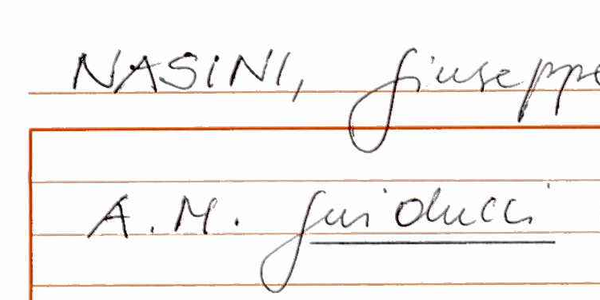 NASINI, Giuseppe
A. M. Guiducci